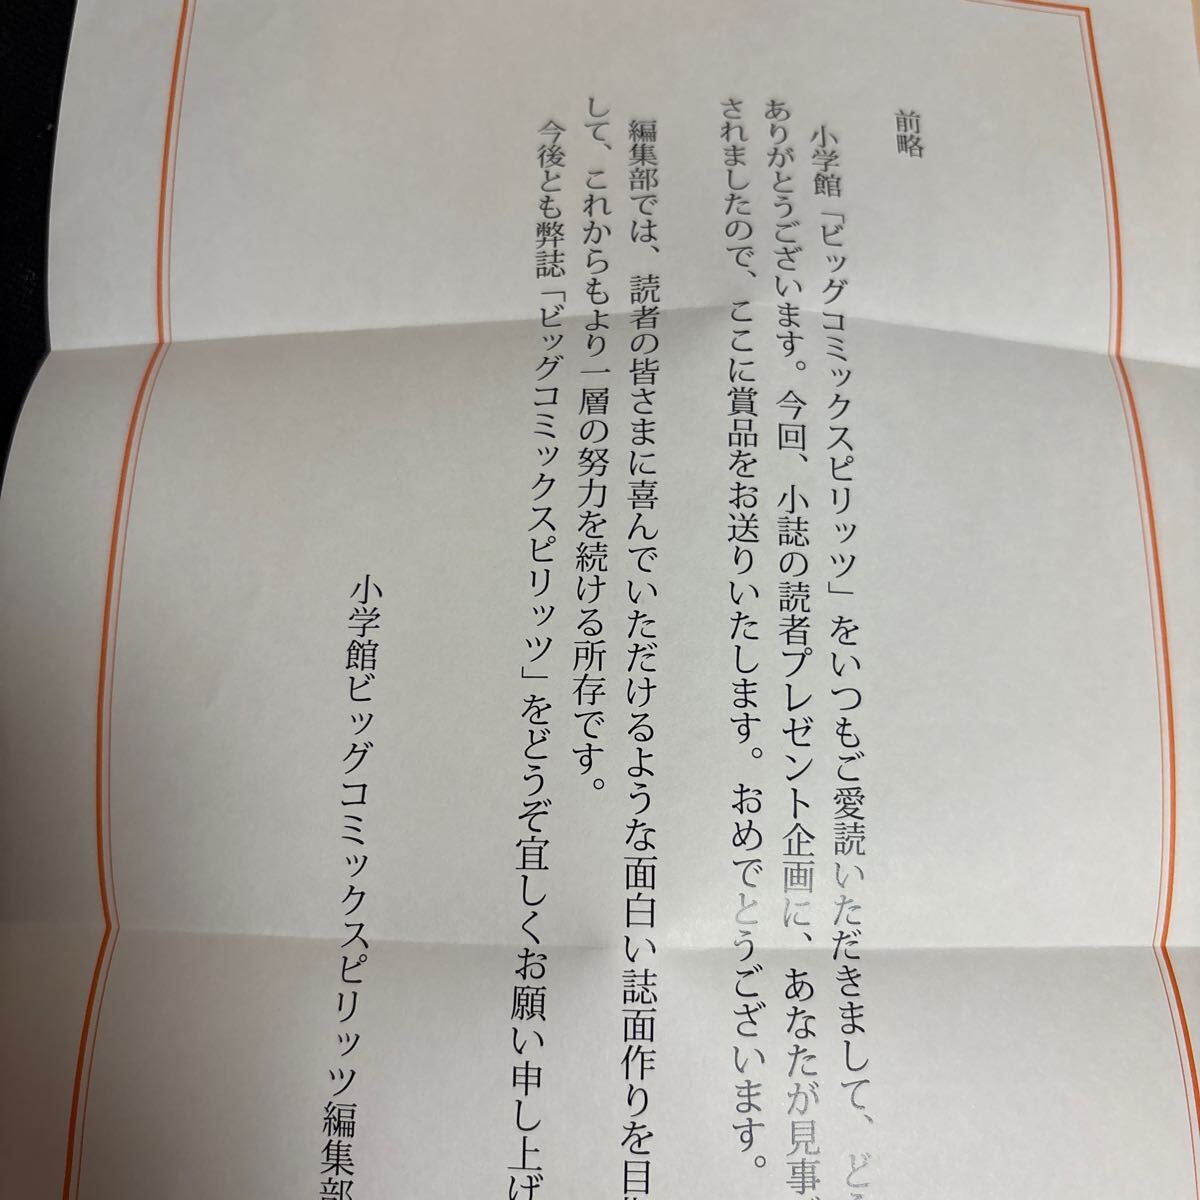 前略
小学館「ビッグコミックスピリッツ」をいつもご愛読いただきまして、どう
ありがとうございます。今回、小誌の読者プレゼント企画に、あなたが見事
されましたので、ここに賞品をお送りいたします。おめでとうございます。
編集部では、読者の皆さまに喜んでいただけるような面白い誌面作りを目指
して、これからもより一層の努力を続ける所存です。
今後とも弊誌「ビッグコミックスピリッツ」をどうぞ宜しくお願い申し上げ
小学館ビッグコミックスピリッツ編集部